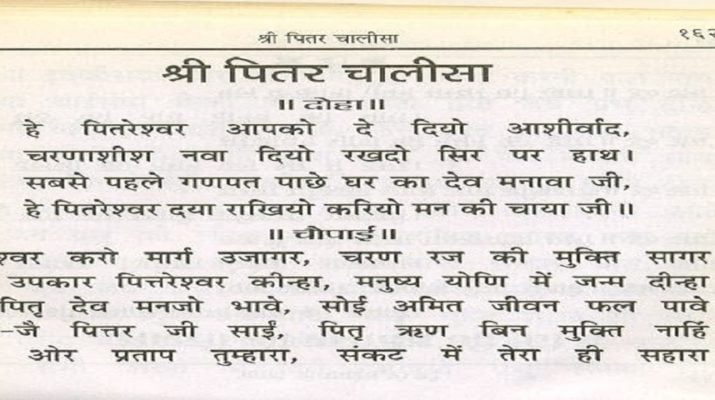 श्री पितर चालीसा १६२
श्री पितर चालीसा
॥ दोहा॥
हे पितरेश्वर आपको दे दियो आशीर्वाद,
चरणाशीश नवा दियो रखदो सिर पर हाथ।
सबसे पहले गणपत पाछे घर का देव मनावा जी,
हे पितरेश्वर दया राखियो करियो मन की चाया जी॥
॥ चौपाई॥
श्वर करो मार्ग उजागर, चरण रज की मुक्ति सागर
उपकार पित्तरेश्वर कीन्हा, मनुष्य योणि में जन्म दीन्हा
पितृ देव मनजो भावे, सोई अमित जीवन फल पावे
-जै पित्तर जी साईं, पितृ ऋण बिन मुक्ति नाहिं
ओर प्रताप तुम्हारा, संकट में तेरा ही सहारा